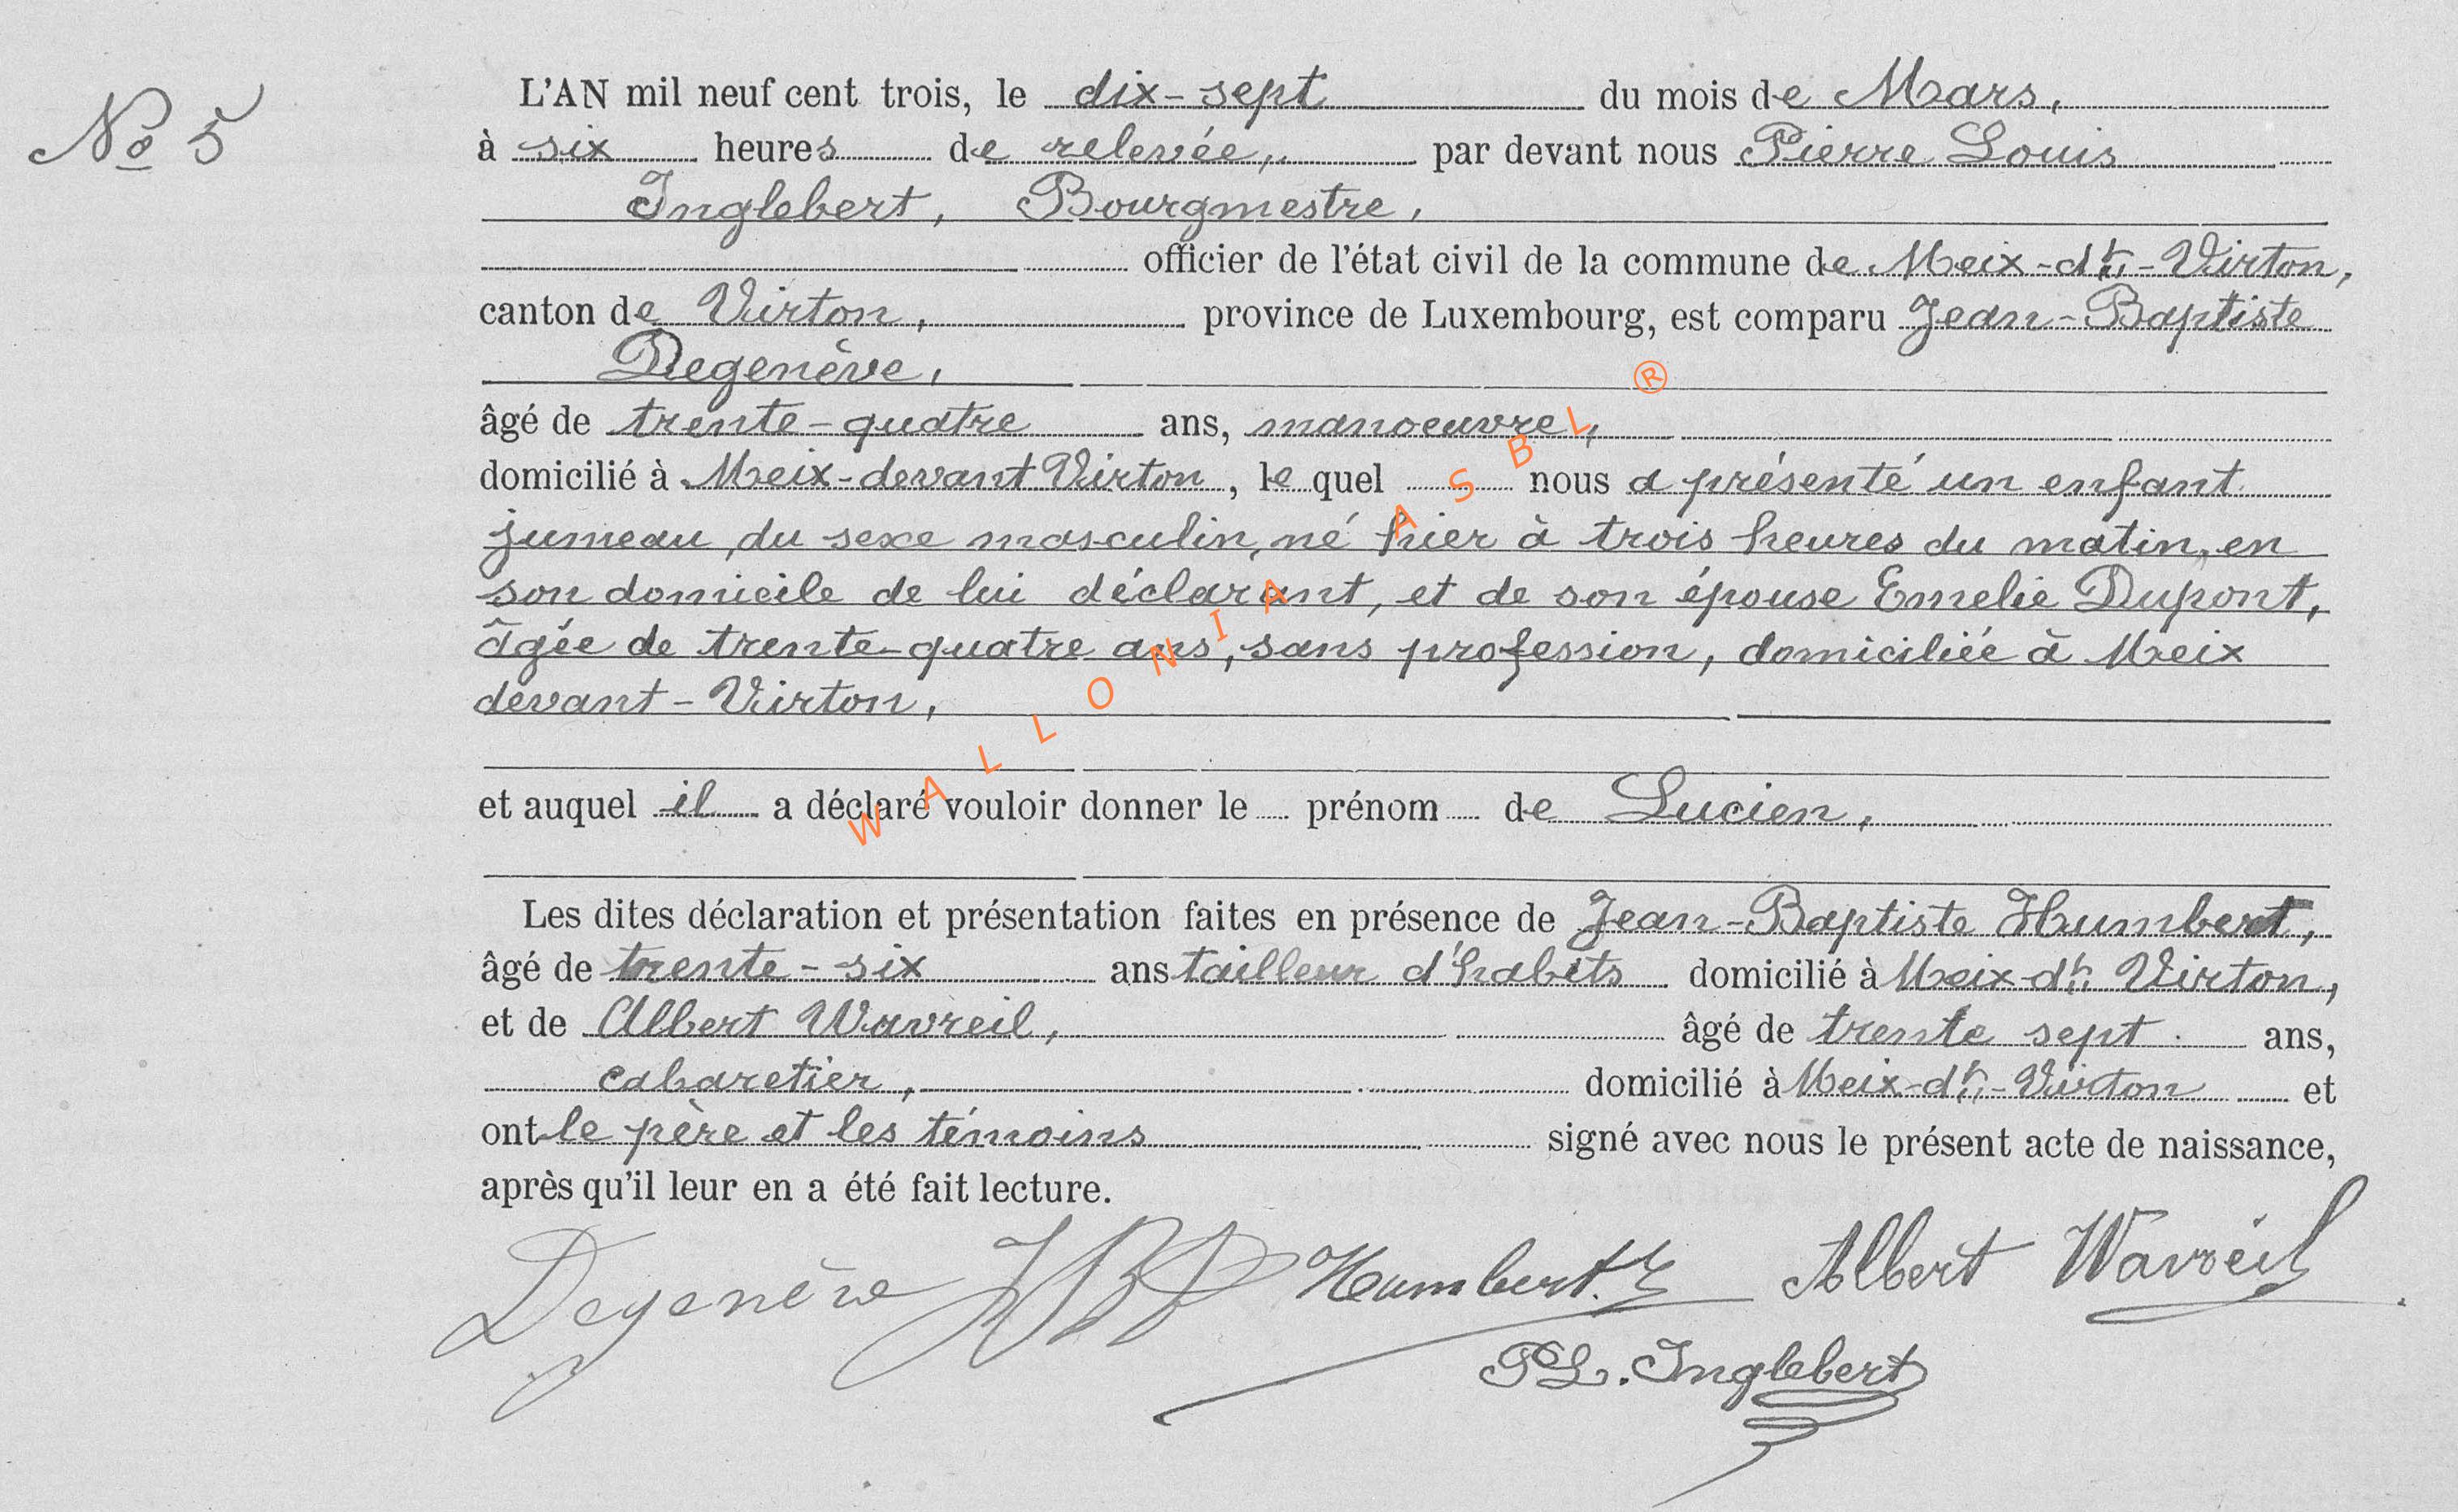 No 5
L'AN mil neuf cent trois, le dix-sept du mois de Mars,
à six heures de relevée, par devant nous Pierre Louis
Inglebert, Bourgmestre,
officier de l'état civil de la commune de Meix-dt-Virton,
canton de Virton, province de Luxembourg, est comparu Jean-Baptiste
Degenève,
âgé de trente-quatre ans, manoeuvre,
domicilié à Meix-devant Virton, le quel nous a présenté un enfant
jumeau, du sexe masculin, né hier à trois heures du matin, en
son domicile de lui déclarant, et de son épouse Emelie Dupont,
âgée de trente-quatre ans, sans profession, domiciliée à Meix
devant-Virton,
et auquel il a déclaré vouloir donner le prénom de Lucien,
Les dites déclaration et présentation faites en présence de Jean-Baptiste Humbert,
âgé de trente-six ans tailleur d'habits domicilié à Meix-dt Virton,
et de Albert Wavreil, âgé de trente sept ans,
cabaretier, domicilié à Meix-dt-Virton et
ont le père et les témoins signé avec nous le présent acte de naissance,
après qu'il leur en a été fait lecture.
Degenève JB Humbert. Albert Wavreil
PL. Inglebert
WALLONIA ASBL ®